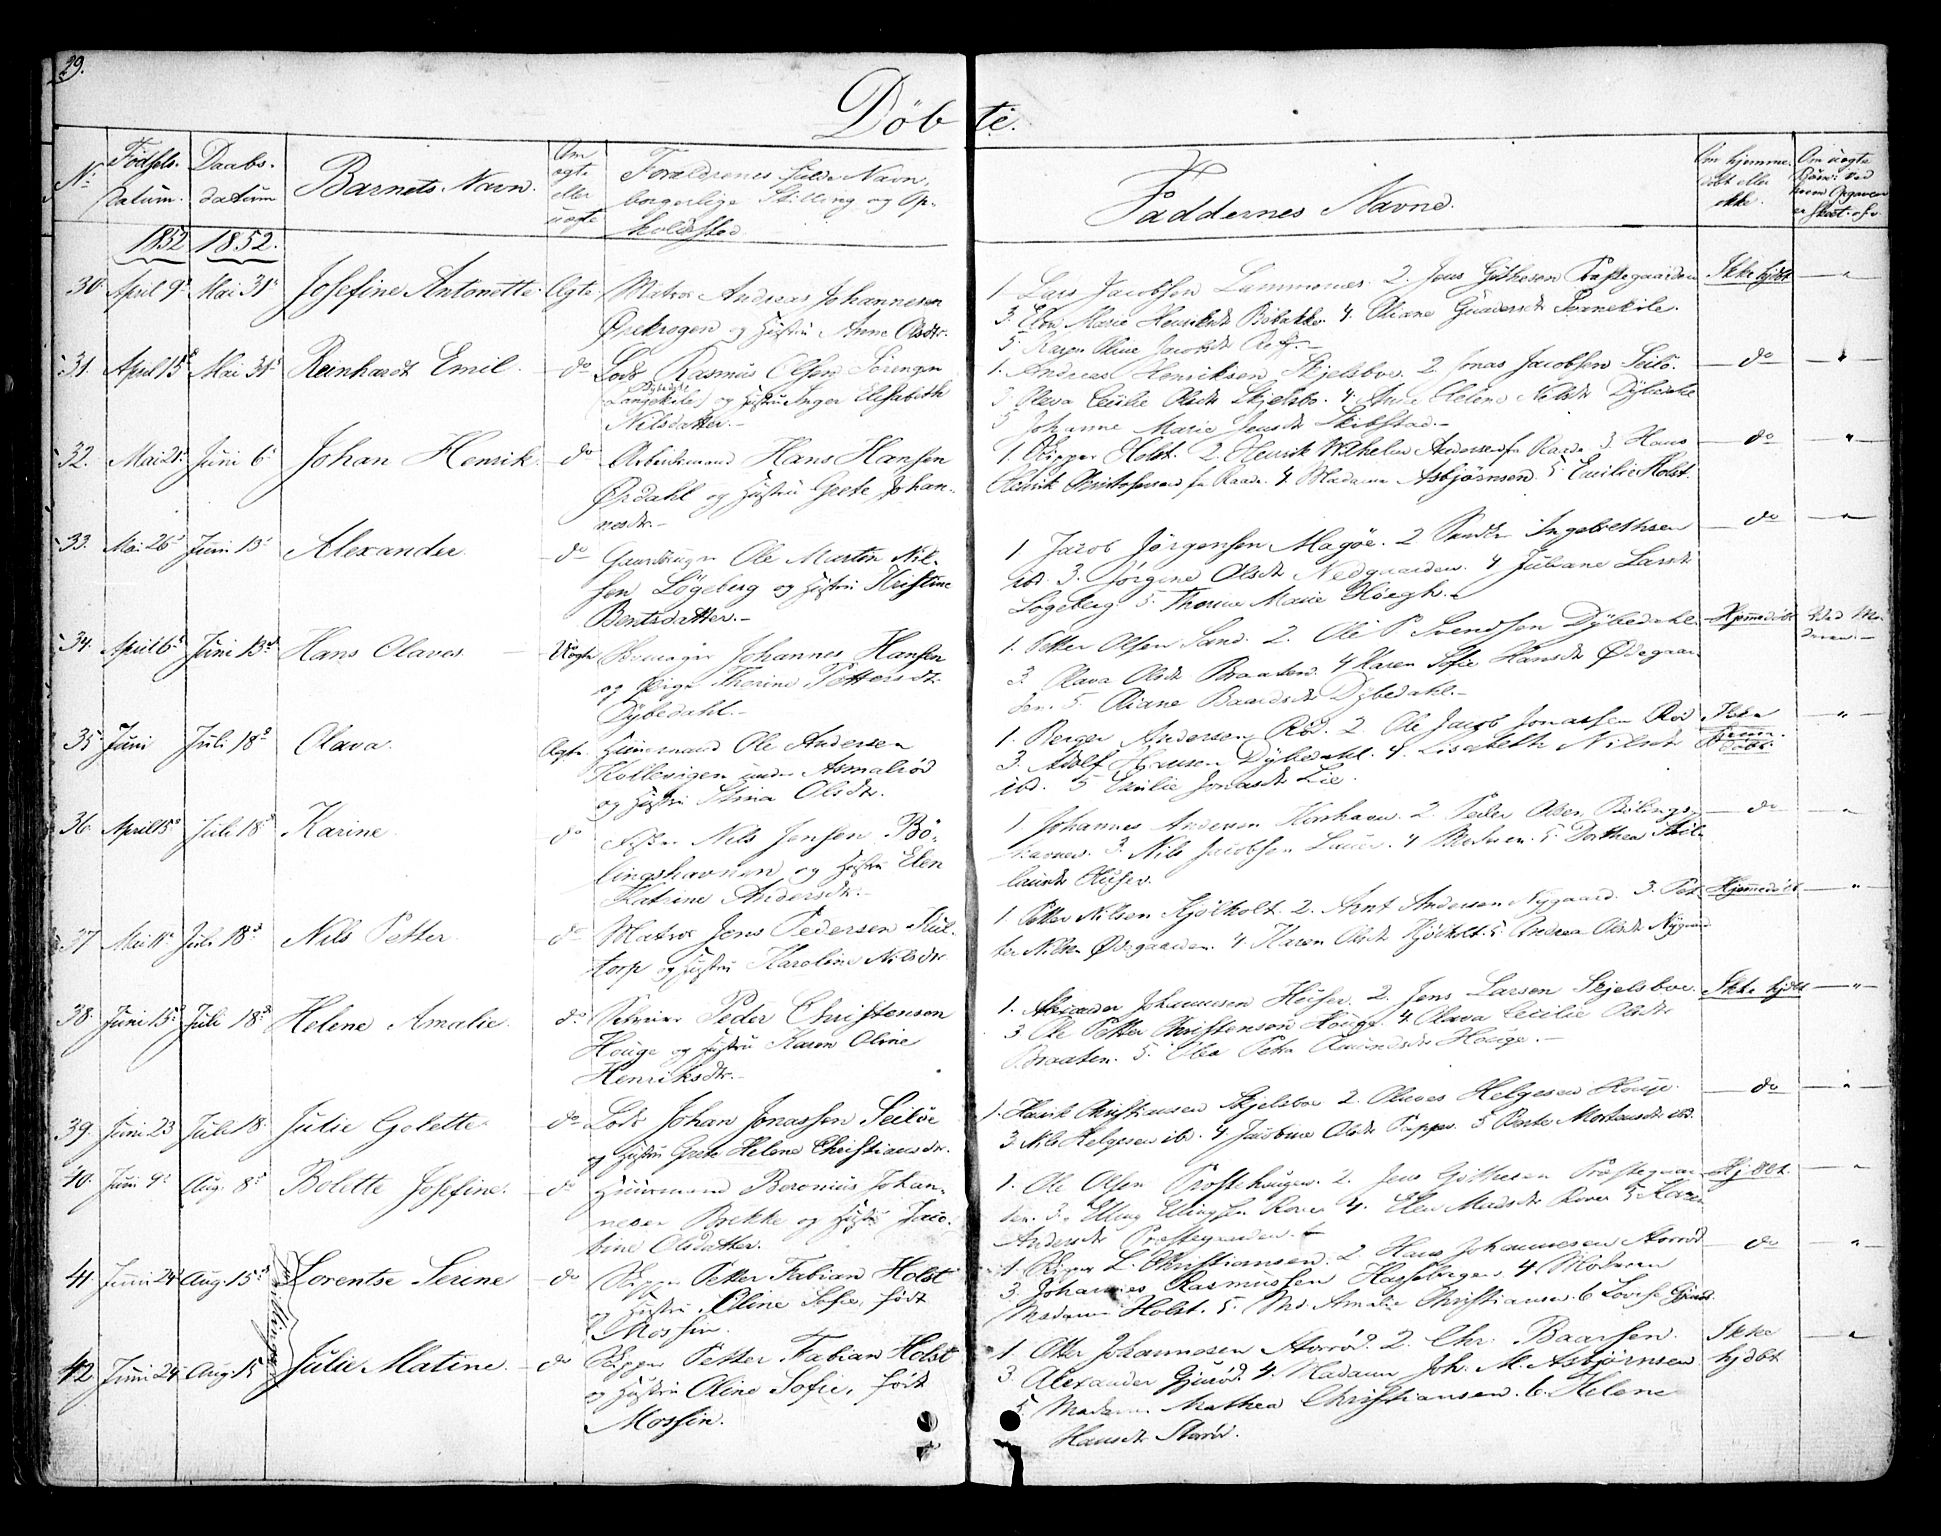 29.
Döbte.
No
Födsels-
datum.
Daabs-
datum
Barnets Navn.
Om
ægte
eller
uægte
Forældrenes fulde Navn,
borgerlige Stilling og Op-
holdssted
Faddernes Navne.
Om hjemme-
döbt eller
ikke.
Om uægte
1852 1852.
30. April 9d Mai 31d Josefine Antonette Ægte Matros Andreas Johannesen
Ørekrogen og Hustru Anne Olsdtr.
1. Lars Jacobsen 2. Jens Præstegaarden
3. Marie Henriksdtr Böbakke. 4. Oliane
5. Karen Oline Jacobsdtr
Ikke hjdbt — "
31. April 15d Mai 31d Reinhardt Emil. do Lods Rasmus Olsen Sörengen
(Langekile) og Hustru Inger Elisabeth
Nilsdatter.—
1. Andreas Henriksen Skjelsboe. 2 Jonas Jacobsen Seilö.
3 Olava Cecilie Olsdtr Skjelsbo. 4 Helene Nilsdtr
5 Johanne Marie Jensdtr Skibstad.—
— do — "
32. Mai 21d Juni 6d Johan Henrik. do Arbeidsmand Hans Hansen
Ørdahl og Hustru Grete Johan-
nesdtr.—
1. Skipper Holst. 2. Henrik Wilhelm Andersen fra Raade 3. Hans
Henrik Christofersen fra Raade. 4 Madame Asbjörnsen. 5 Emilie Holst.
— do — "
33. Mai 26d Juni 13d Alexander do Gaardbruger Ole Martin Nil-
sen Lögeberg og Hustru Kristine
Berntsdatter.—
1. Jacob Jörgensen Magöe. 2 Ingebrethsen
ibd. 3. Jörgine Olsdtr Nedgaarden. 4 Juliane Larsdtr
Lögeberg 5. Thorine Marie Höegh.—
— do — "
34. April 6d Juni 13d Hans Olaves Uægte Johannes Hansen
og Pige Thorine Pettersdtr
Dybedahl.—
1. Petter Olsen Sand. 2. Ole P Svendsen Dybedahl.
3. Olava Olsdtr Braaten. 4 Karen Sofie Hansdtr Ødegaar-
den. 5. Oliane Baardsdtr Dybedahl.—
Hjemmedöbt Ved Mo-
deren.—
35. Juni Juli 18d Olava. Ægte. Huusmand Ole Andersen
Kollevigen under Asmalröd
og Hustru Stina Olsdtr.
1. Berger Andersen Röd. 2 Ole Jacob Jonassen Röd
3. Adolf Hansen Dybedahl. 4. Lisabeth Nilsdtr
ibd. 5 Emilie Jonasdtr Lie.
Ikke
hjemme-
döbt. — "
36. April 18d Juli 18d Karine do Nils Jensen Bö-
lingshavnen og Hustru Elen
Katrine Andersdtr.—
1. Johannes Andersen 2. Peder Olsen Bölings-
havnen. 3. Nils Jacobsen 4 Moderen. 5. Dorthea
— do — "
37 Mai 11d Juli 18d Nils Petter. do Matros Jens Pedersen Kul-
torp og Hustru Karoline Nilsdtr
1. Petter Nilsen Kjölholt. 2. Arnt Andersen Nygaard. 3. Pet-
ter Nilsen Ødegaarden. 4. Karen Olsdtr Kjölholt. 5. Andrea Olsdtr Nygaard
Hjemmedöbt — "
38. Juni 15d Juli 18d Helene Amalie. do Peder Christensen
Houge og Hustru Karen Oline
Henriksdtr.—
1. Alexander Johannesen 2. Jens Larsen Skjelsboe.
3 Ole Petter Christensen Houge. 4 Olava Cecilie Olsdtr
Braaten. 5. Petra Houge.—
Ikke hjdbt — "
39. Juni 23 Juli 18 Julie Golette. do Lods Johan Jonassen Seilöe
og Hustru Grete Helene Christiansdtr.
1. Henrik Christiansen Skjelsboe 2. Olaves Helgesen Houge.
3 Nils Helgesen ibd. 4 Jacobine Olsdtr 5 Berte Mortensdtr ibd.
— do — "
40. Juni 9d Aug. 8d Bolette Josefine. do Huusmand Beronius Johan-
nesen Brekke og Hustru Jaco-
bine Olsdatter.
1. Ole Olsen 2. Jens Præstegaar-
den. 3. Elling Ellingsen 4. Elen Madsdtr 5 Karen
Andersdtr Præstegaarden.
Hj. döbt. — "
41. Juni 24d Aug. 15d Lorentse Serine do Skipper Petter Fabian Holst
og Hustru Oline Sofie, födt
Mossin.
1 L. Christiansen. 2. Hans Johannesen Storröd
3. Johannes Rasmussen Hasselvigen 4 Moderen
Madame Holst. 5. Md. Amalie Christiansen. 6 Lovise
— do — "
Tvillinger
42. Juni 24 Aug. 15 Julie Matine. do Skipper Petter Fabian Holst
og Hustru Oline Sofie, födt
Mossin.
1. Otter Johannesen Storröd. 2. Chr. Baarsen.
3. Alexander Gjuröd. 4. Madam Joh. M. Asbjörnsen
5. Madam Mathea Christiansen. 6. Helene
Hansdtr Storröd.
Ikke
hjdbt